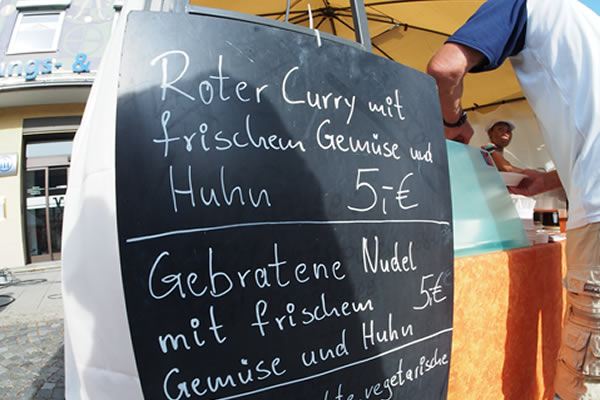 ngs- &
Roter Curry mit
frischem Gemüse und
Huhn 5,-€
Gebratene Nudel
mit frischem 5,€
Gemüse und Huhn
vegetarische